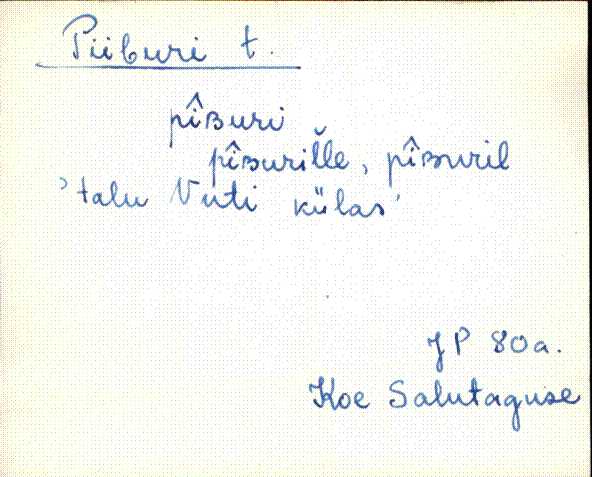 Piiburi t.
pîʙuri
pîʙuriľľe, pîʙuril
'talu Vuti külas'
JP 80a.
Koe Salutaguse